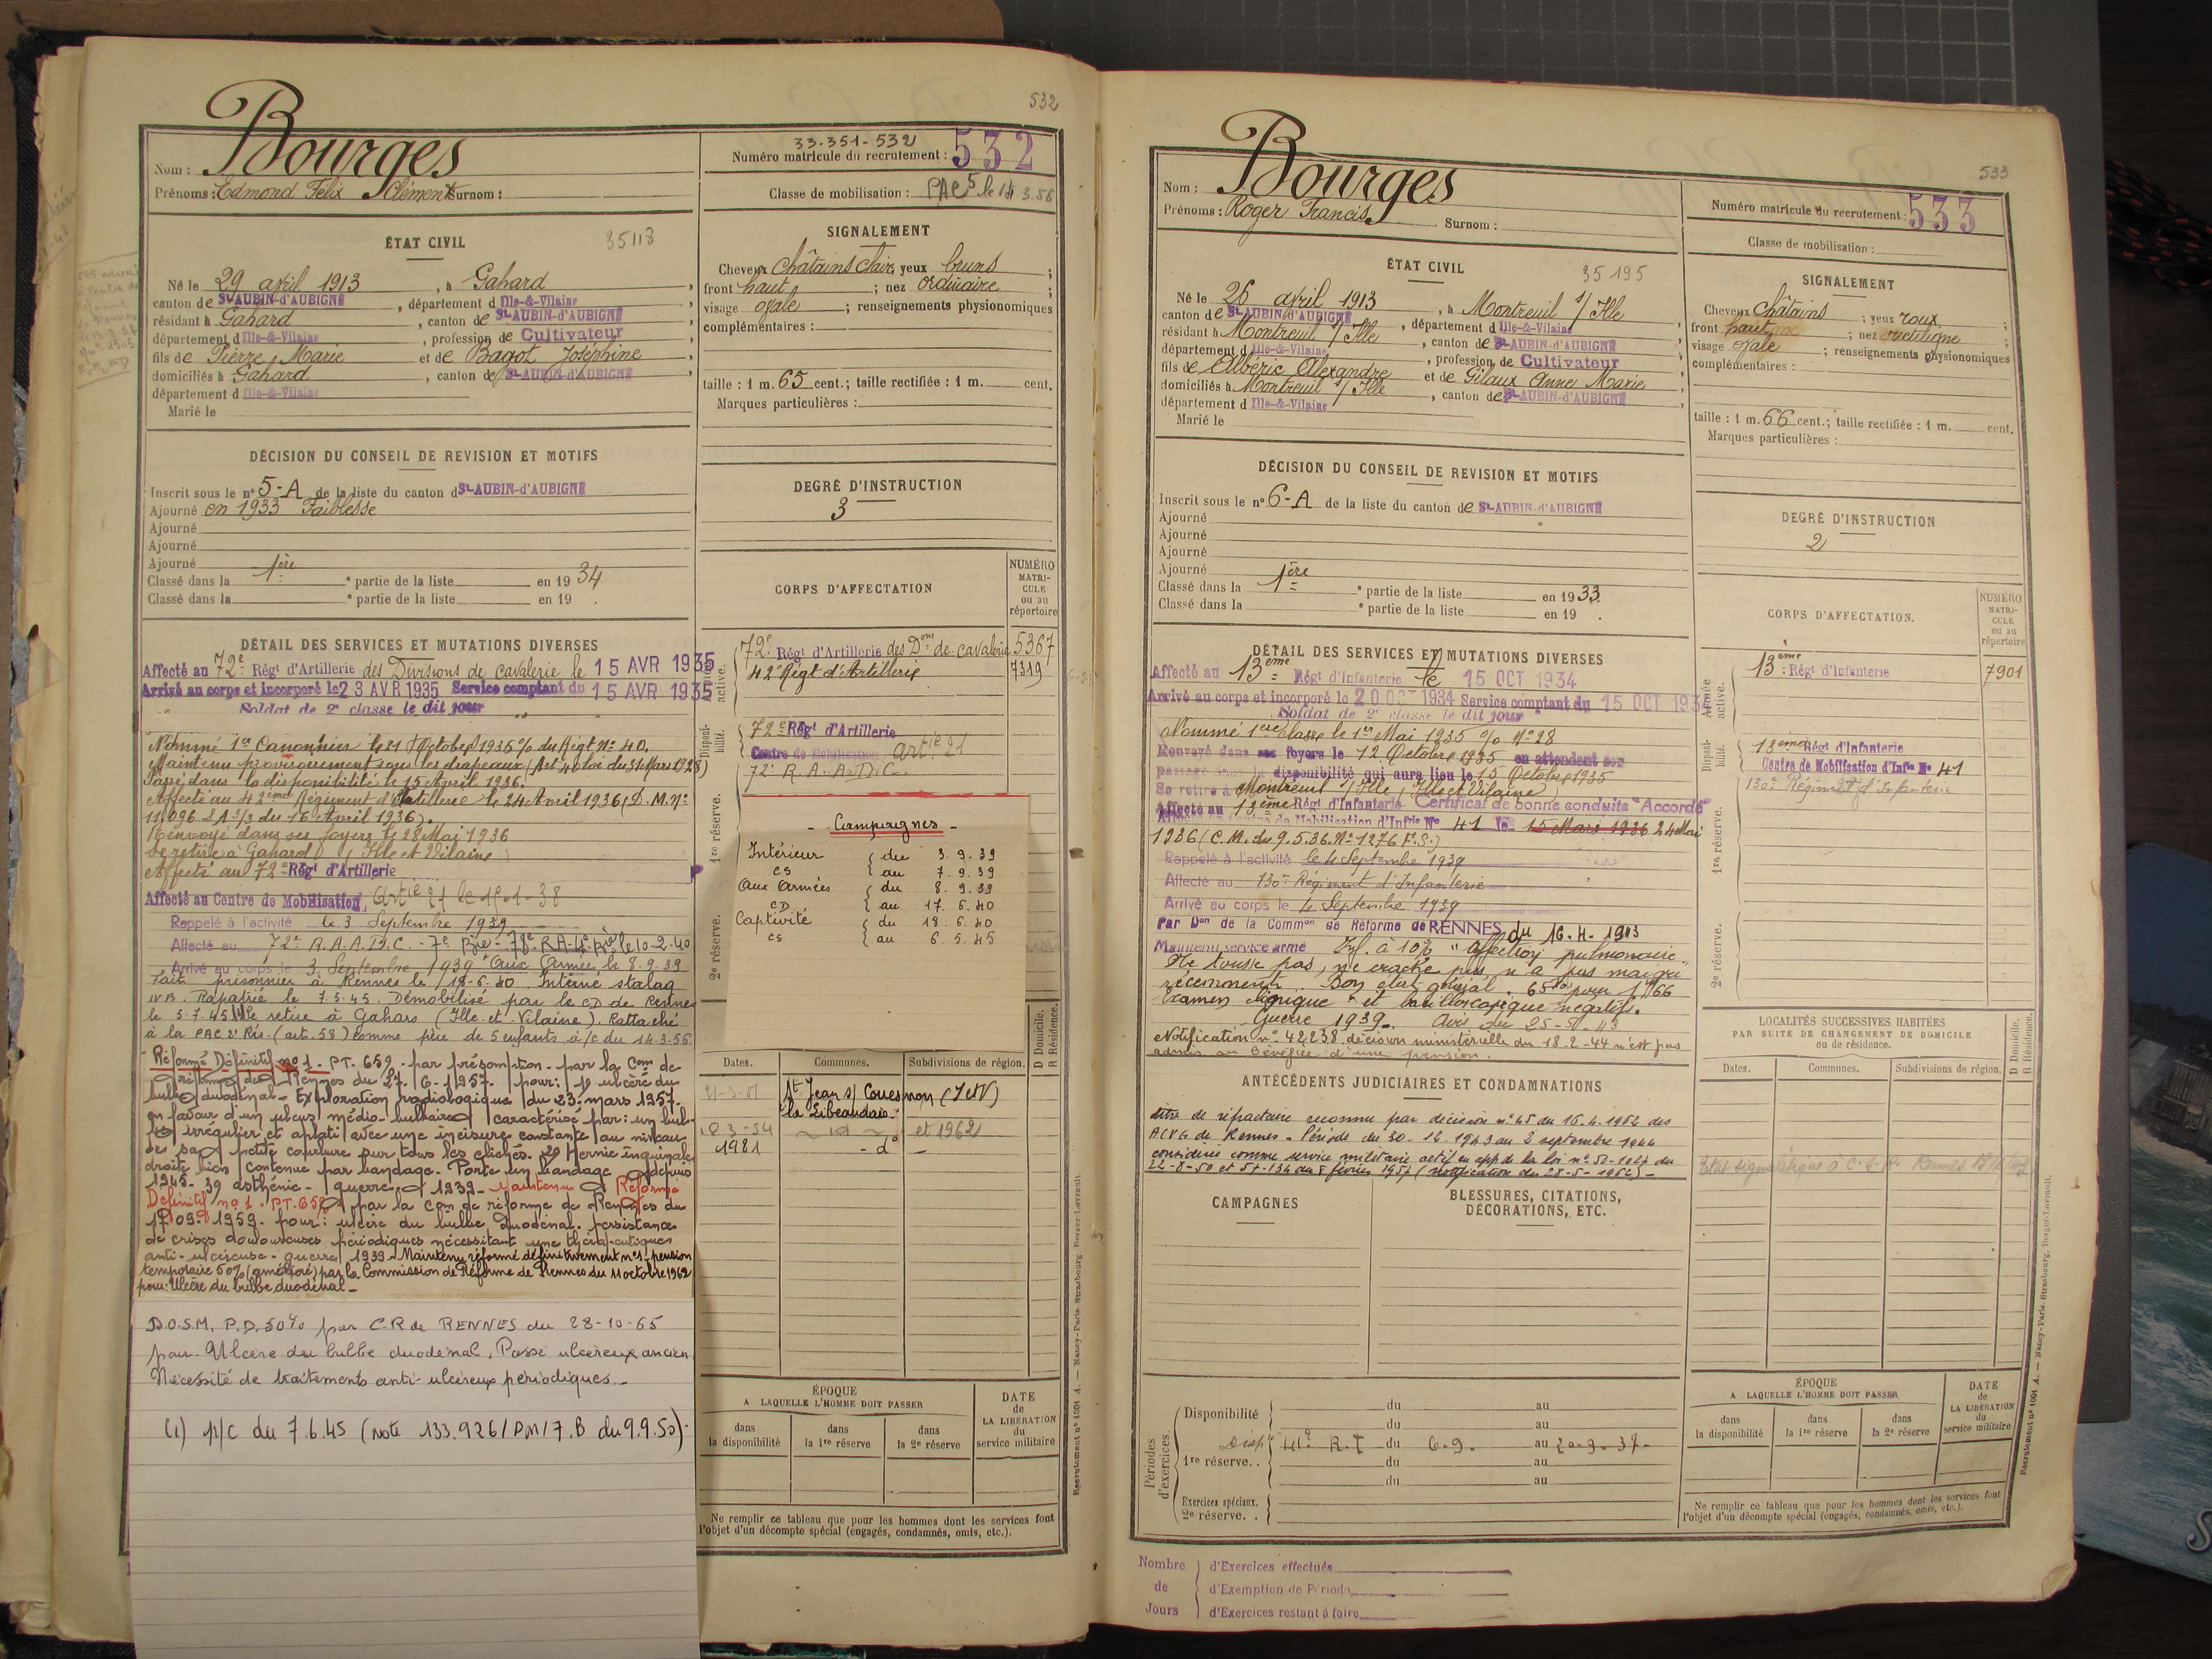 532
Nom : Bourges
Prénoms : Edmond Félix Clément Surnom :
33-351-532
Numéro matricule du recrutement : 532
Classe de mobilisation : PAC 5 le 14 3.56
ÉTAT CIVIL
35113
Né le 29 avril 1913, à Gahard,
canton de St-AUBIN-d'AUBIGNÉ, département d Ille-&-Vilaine
résidant à Gahard, canton de St-AUBIN-d'AUBIGNÉ
département d Ille-&-Vilaine, profession de Cultivateur
fils de Pierre Marie et de Bagot Joséphine,
domiciliés à Gahard, canton de St-AUBIN-d'AUBIGNÉ,
département d Ille-&-Vilaine
Marié le
SIGNALEMENT
Cheveux châtains clair; yeux bruns;
front haut; nez ordinaire;
visage ovale; renseignements physionomiques
complémentaires :
taille : 1 m. 65 cent.; taille rectifiée : 1 m. cent.
Marques particulières :
DÉCISION DU CONSEIL DE REVISION ET MOTIFS
Inscrit sous le n° 5-A de la liste du canton d St-AUBIN-d'AUBIGNÉ
Ajourné en 1933 Faiblesse
Ajourné
Ajourné
Ajourné
Classé dans la 1ère e partie de la liste en 19 34
Classé dans la e partie de la liste en 19 .
DEGRÉ D'INSTRUCTION
3
DÉTAIL DES SERVICES ET MUTATIONS DIVERSES
Affecté au 72e Régt d'Artillerie des Divisions de cavalerie le 15 AVR 1935
Arrivé au corps et incorporé le 23 AVR 1935 Service comptant du 15 AVR 1935
Soldat de 2e classe le dit jour
Nommé 1er Canonnier le 21 Octobre 1935 % du Régt N° 40.
Maintenu provisoirement sous les drapeaux (Art 40 loi du 31 Mars 1928)
Passé dans la disponibilité le 15 Avril 1936.
Affecté au 42ème Régiment d'Artillerie le 24 Avril 1936 (D.M. N°
11.096 2A 3/3 du 16 Avril 1936).
Renvoyé dans ses foyers le 28 Mai 1936
Se retire à Gahard (Ille et Vilaine)
Affecté au 72e Régt d'Artillerie
Affecté au Centre de Mobilisation Artie 21 le 1-1-38
Rappelé à l'activité le 3 Septembre 1939
Affecté au 72e R.A.A.D.C. - 7e Bie - 78e R.A - 4e Bie le 10-2-40
Arrivé au corps le 3 Septembre 1939 Aux Armées le 8-9-39
Fait prisonnier à Rennes le 18-6-40. Interné stalag
IV B. Rapatrié le 7.5.45. Démobilisé par le CD de Rennes
le 5-7-45 (1) Se retire à Gahard (Ille-et-Vilaine). Rattaché
à la PAC 2e Rés. (art. 58) comme père de 5 enfants à/c du 14-3-56.
Réformé Définitif no 1 - PT. 65% par présomption - par la Com de
réforme de Rennes du 27/6-1957 - pour : 1° ulcère du
bulbe duodénal - Exploration radiologique du 23 mars 1957 -
en faveur d'un ulcus médio-bulbaire caractérisé par : un bul-
be irrégulier et aplati avec une incisure constante au niveau
de sa petite courbure sur tous les clichés. 2° Hernie inguinale
droite bien contenue par bandage. Porte un bandage depuis
1945 - 3° asthénie - guerre 1939 - Maintenu Réformé
Définitif no 1. PT. 65% par la Con de réforme de Rennes du
17 09 1959. pour : ulcère du bulbe duodénal. persistance
de crises douloureuses périodiques nécessitant une thérapeutique
anti-ulcéreuse - guerre 1939 - Maintenu réformé définitivement n° 1 - pension
temporaire 50% (amélioré) par la Commission de Réforme de Rennes du 11 octobre 1962
pour : Ulcère du bulbe duodénal -
D.O.S.M. P.D. 50% par C.R de RENNES du 28-10-65
pour - Ulcère du bulbe duodénal. Passé ulcéreux ancien
Nécessité de traitements anti-ulcéreux périodiques -
(1) p/c du 7.6.45 (note 133.926/PM/7.B du 9.9.50) -
CORPS D'AFFECTATION
NUMÉRO MATRICULE ou au répertoire
Armée active.
72e Régt d'Artillerie des Dons de cavalerie 5367
42e Régt d'Artillerie 7319
Disponibilité.
72e Régt d'Artillerie
Centre de Mobilisation artie 21
72e R.A.A.D.C.
1re réserve.
2e réserve.
- Campagnes -
Intérieur du 3.9.39
CS au 7.9.39
Aux Armées du 8.9.39
CD au 17.6.40
Captivité du 18.6.40
CS au 6.5.45
D Domicile.
R Résidence.
Dates. Communes. Subdivisions de région.
21-3-51 St Jean s/ Couesnon (I et V)
la Libeaudais -
10-3-54 id et 1962
1981 - d° -
ÉPOQUE
A LAQUELLE L'HOMME DOIT PASSER
dans la disponibilité
dans la 1re réserve
dans la 2e réserve
DATE de LA LIBÉRATION du service militaire
Ne remplir ce tableau que pour les hommes dont les services font
l'objet d'un décompte spécial (engagés, condamnés, omis, etc.).
Recrutement n° 1001 A. — Nancy-Paris-Strasbourg, Berger-Levrault.
533
Nom : Bourges
Prénoms : Roger Francis Surnom :
Numéro matricule du recrutement : 533
Classe de mobilisation :
ÉTAT CIVIL
35195
Né le 26 avril 1913, à Montreuil s/ Ille
canton de St-AUBIN-d'AUBIGNÉ, département d Ille-&-Vilaine
résidant à Montreuil s/ Ille, canton de St-AUBIN-d'AUBIGNÉ
département d Ille-&-Vilaine, profession de Cultivateur
fils de Albéric Alexandre et de Gilaux Anne Marie
domiciliés à Montreuil s/ Ille, canton de St-AUBIN-d'AUBIGNÉ
département d Ille-&-Vilaine
Marié le
SIGNALEMENT
Cheveux châtains; yeux roux;
front haut; nez rectiligne;
visage ovale; renseignements physionomiques
complémentaires :
taille : 1 m. 66 cent.; taille rectifiée : 1 m. cent.
Marques particulières :
DÉCISION DU CONSEIL DE REVISION ET MOTIFS
Inscrit sous le n° 6-A de la liste du canton de St-AUBIN-d'AUBIGNÉ
Ajourné
Ajourné
Ajourné
Ajourné
Classé dans la 1ère e partie de la liste en 19 33.
Classé dans la e partie de la liste en 19 .
DEGRÉ D'INSTRUCTION
2
DÉTAIL DES SERVICES ET MUTATIONS DIVERSES
Affecté au 13ème Régt d'Infanterie le 15 OCT 1934
Arrivé au corps et incorporé le 20 OCT 1934 Service comptant du 15 OCT 1934
Soldat de 2e classe le dit jour
Nommé 1ère classe le 1er Mai 1935 % N° 28
Renvoyé dans ses foyers le 12 Octobre 1935 en attendant son
passage dans la disponibilité qui aura lieu le 15 Octobre 1935
Se retire à Montreuil s/ Ille, Ille et Vilaine
Affecté au 13ème Régt d'Infanterie Certificat de bonne conduite "Accordé"
Affecté au Centre de Mobilisation d'Infie N° 41 le 15 Mars 1936 24 Mai
1936 (C.M. du 9.5.36. N° 1276 F.S.)
Rappelé à l'activité le 4 Septembre 1939
Affecté au 130e Régiment d'Infanterie
Arrivé au corps le 4 Septembre 1939
Par Don de la Common de Réforme de RENNES du 16.4.1943
Maintenu service armé Inf. à 10% "affection pulmonaire"
Ne tousse pas, ne crache pas, n'a pas maigri
récemment. Bon état général. 65 kg pour 1m66
Examen clinique et bacilloscopique négatifs.
Guerre 1939. Avis du 25-5-43
Notification n° 42238 décision ministérielle du 18-2-44 n'est pas
admis au bénéfice d'une pension.
ANTÉCÉDENTS JUDICIAIRES ET CONDAMNATIONS
titre de réfractaire reconnu par décision n° 45 du 16.4.1952 des
ACVG de Rennes - Période du 20-12-1943 au 2 septembre 1944
considérée comme service militaire actif en app. de la loi n° 50-1027 du
22-8-50 et 51-134 du 8 février 1951 (notification du 28-5-1952) -
CAMPAGNES
BLESSURES, CITATIONS, DÉCORATIONS, ETC.
Périodes d'exercices.
Disponibilité du au
du au
Dispé 41e R.I du 6-9- au 20-9-37-
1re réserve.. du au
du au
Exercices spéciaux.
2e réserve. .
CORPS D'AFFECTATION.
NUMÉRO MATRICULE ou au répertoire
Armée active.
13ème Régt d'Infanterie 7901
Disponibilité.
13ème Régt d'Infanterie
Centre de Mobilisation d'Infie N° 41
130e Régiment d'Infanterie
1re réserve.
2e réserve.
LOCALITÉS SUCCESSIVES HABITÉES
PAR SUITE DE CHANGEMENT DE DOMICILE
ou de résidence.
D Domicile.
R Résidence.
Dates. Communes. Subdivisions de région.
Etat signalétique à C.S.R. Rennes
ÉPOQUE
A LAQUELLE L'HOMME DOIT PASSER
dans la disponibilité
dans la 1re réserve
dans la 2e réserve
DATE de LA LIBÉRATION du service militaire
Ne remplir ce tableau que pour les hommes dont les services font
l'objet d'un décompte spécial (engagés, condamnés, omis, etc.).
Recrutement n° 1001 A. — Nancy-Paris-Strasbourg, Berger-Levrault.
Nombre de Jours
d'Exercices effectués
d'Exemption de Période
d'Exercices restant à faire